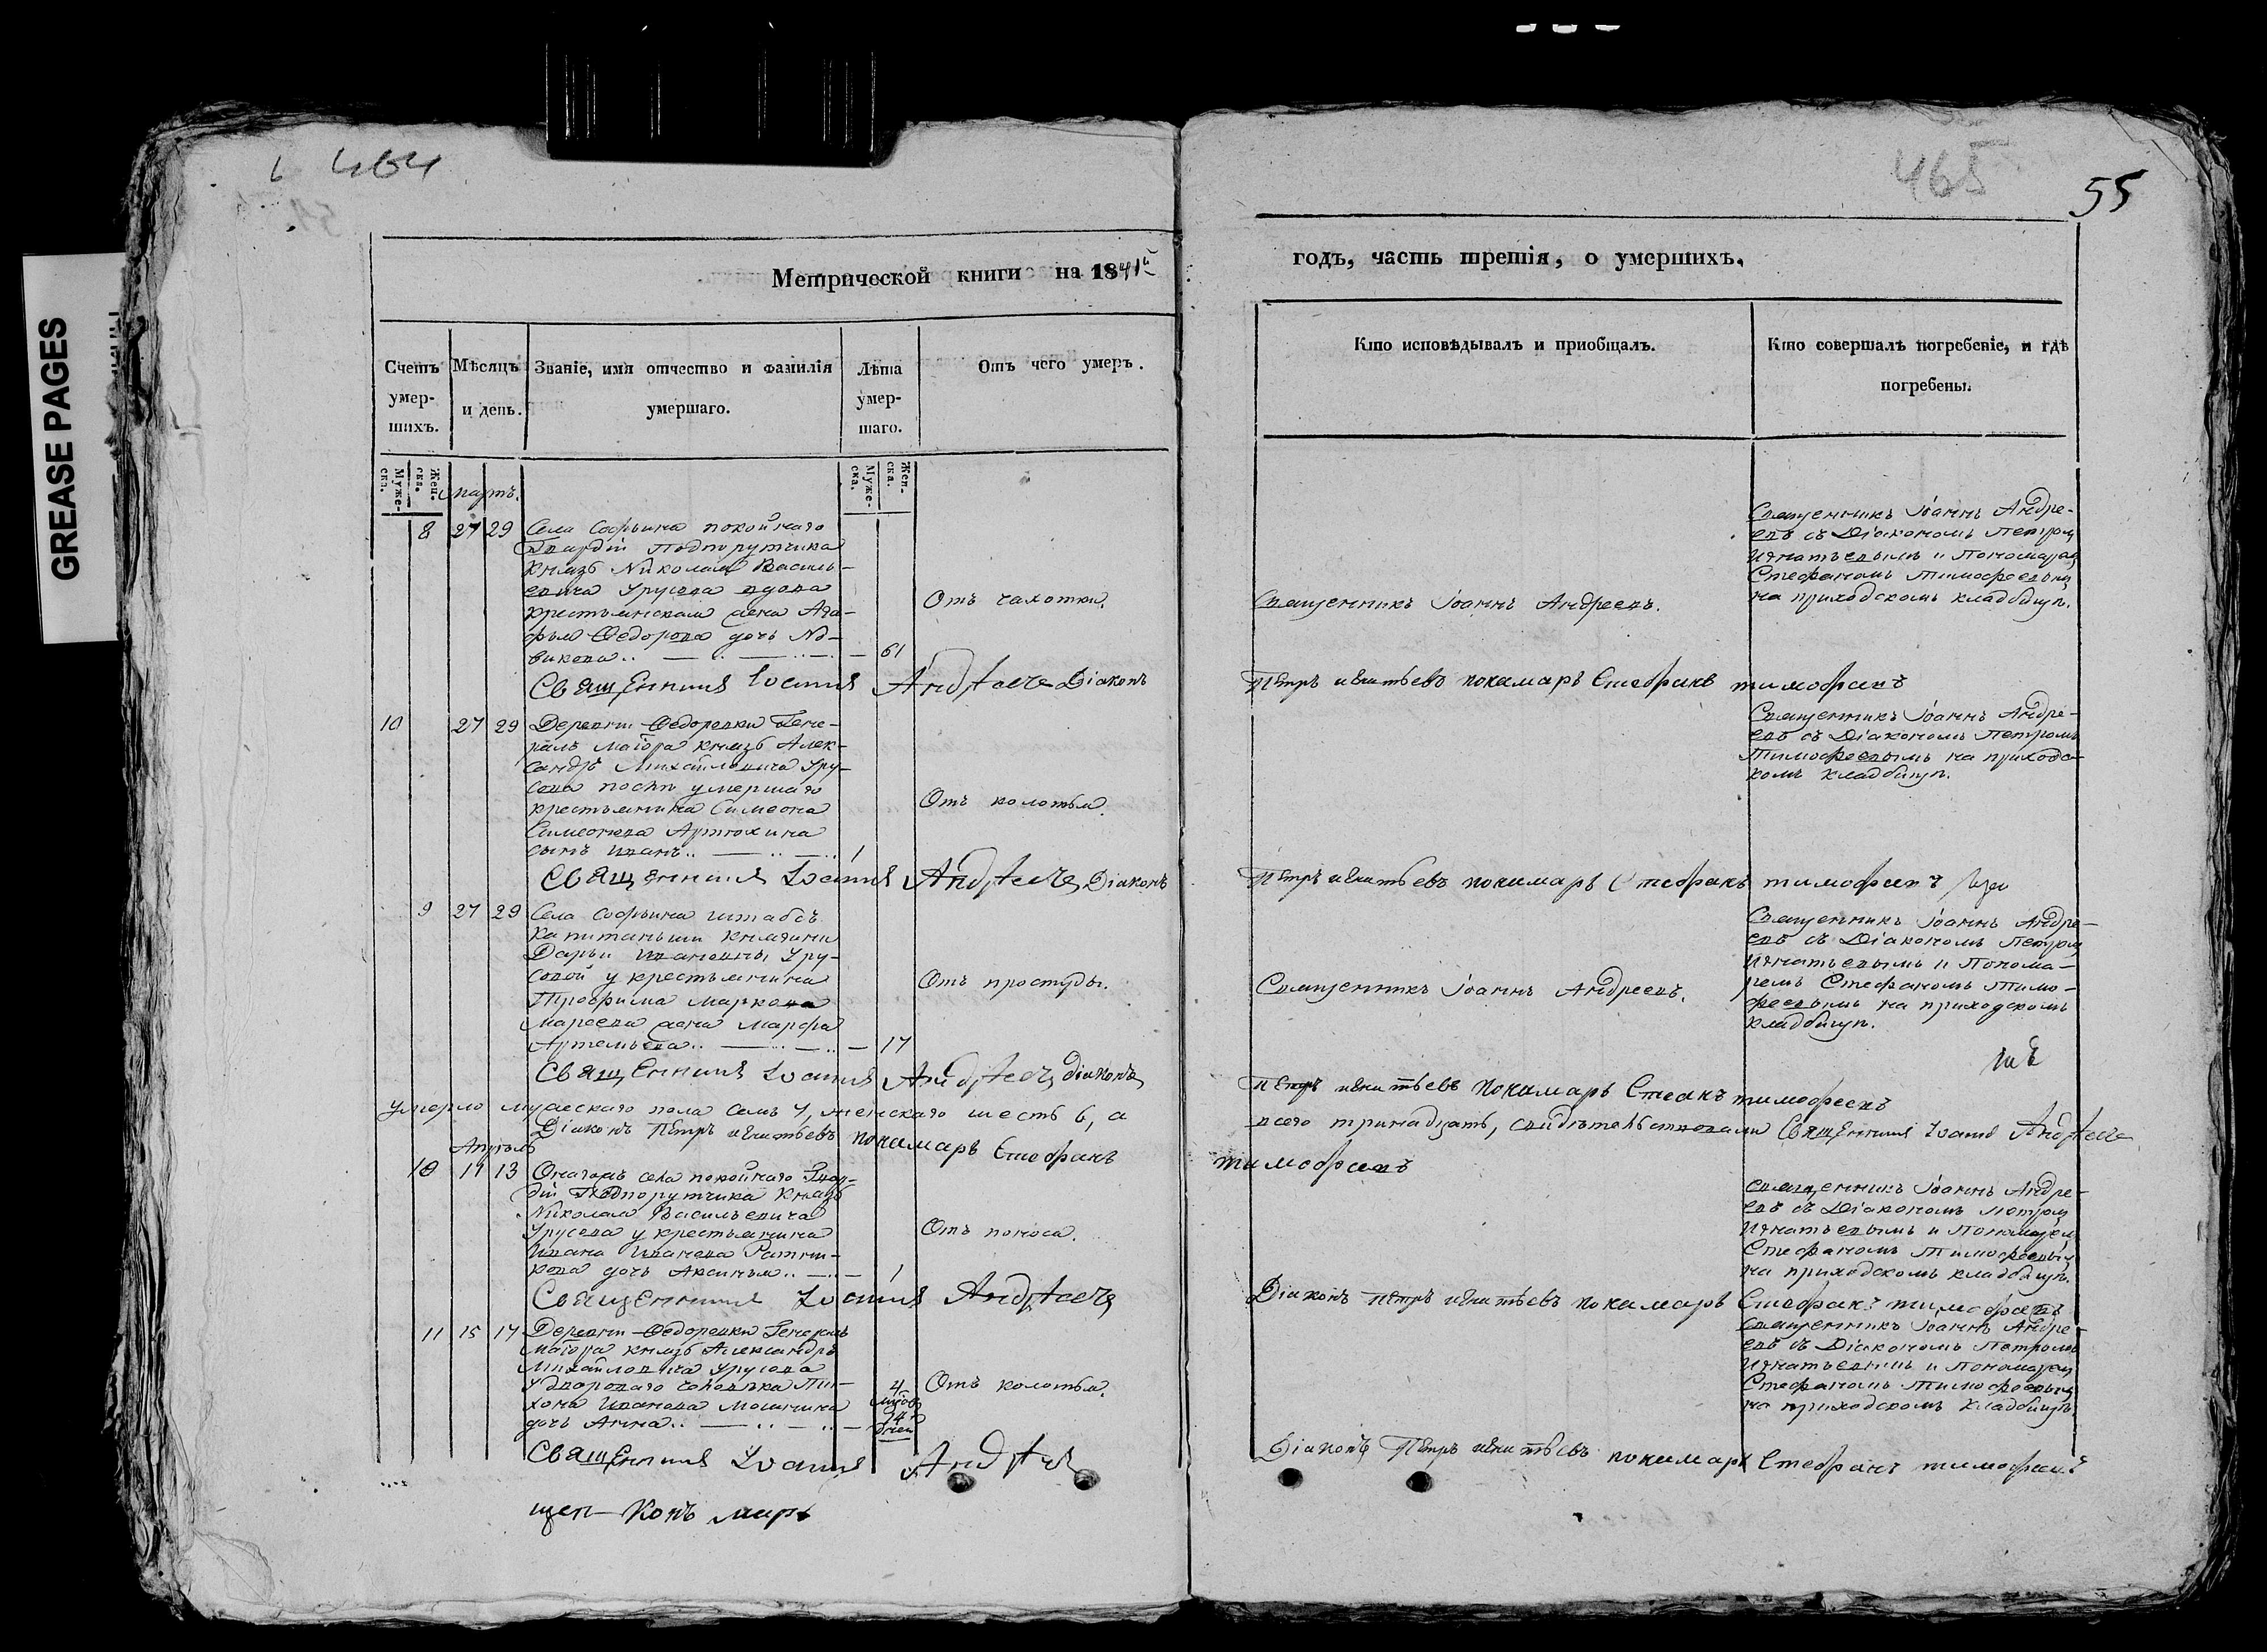 GREASE PAGES
464
465
55
Метрической книги на 1841й
годъ, часть третія, о умершихъ.
Счетъ умер-шихъ.
Мѣсяцъ и день.
Званіе, имя отчество и фамилія умершаго.
Лѣта умер-шаго.
Отъ чего умеръ.
Кто исповѣдывалъ и приобщалъ.
Кто совершалъ погребеніе, и гдѣ погребены.
Муже-ска.
Жен-ска.
Муже-ска.
Жен-ска.
Мартъ.
8 27 29 Села Софьина покойнаго
Гвардіи Подпорутчика
Князь Николая Василь-
евича Урусова вдова
крестьянская жена Ага-
фья Федорова дочь Но-
викова.. 61
Отъ чахотки.
Священникъ Іоаннъ Андреевъ.
Священникъ Іоаннъ Андре-
евъ съ Діакономъ Петромъ
Игнатьевымъ и Пономаремъ
Стефаномъ Тимофеевымъ
на приходскомъ кладбищѣ.
Священникъ Іоаннъ Андреевъ Діаконъ
Петръ игнатьевъ пономарь Стефанъ тимофеевъ
10 27 29 Деревни Федоровки Гене-
ралъ маіора князь Алек-
сандръ Михайловича Уру-
сова послѣ умершаго
крестьянина Симеона
Симеонова Артюхина
сынъ Иванъ.. 1
Отъ колотья.
Священникъ Іоаннъ Андре-
евъ съ Діакономъ Петромъ
Тимофеевымъ на приходс-
комъ кладбищѣ.
Священникъ Іоаннъ Андреевъ Діаконъ
Петръ игнатьевъ пономарь Стефанъ тимофеевъ
9 27 29 Села Софьина штабсъ
капитанши княгини
Дарьи Ивановны Уру-
совой у крестьянина
Трофима Маркова
Мареева жена Марфа
Артемьева.. 17
Отъ простуды.
Священникъ Іоаннъ Андреевъ.
Священникъ Іоаннъ Андре-
евъ съ Діакономъ Петромъ
Игнатьевымъ и Понома-
ремъ Стефаномъ Тимо-
феевымъ на приходскомъ
кладбищѣ.
Священникъ Іоаннъ Андреевъ діаконъ
Петръ игнатьевъ пономарь Стеанъ тимофеевъ
умерло мужескаго пола семь 7, женскаго шесть 6, а
всего тринадцать, свидѣтельствовали Священникъ Іоаннъ Андреевъ
Діаконъ Петръ игнатьевъ пономарь Стефанъ
тимофеевъ
Апрѣль
10 11 13 Онагожъ села покойнаго Гвар-
діи Подпорутчика Князь
Николая Васильевича
Урусова у крестьянина
Ивана Иванова Ратни-
кова дочь Аксинья.. 1
Отъ поноса.
Священникъ Іоаннъ Андре-
евъ съ Діакономъ Петромъ
Игнатьевымъ и Пономаремъ
Стефаномъ Тимофеевымъ
на приходскомъ кладбищѣ.
Священникъ Іоаннъ Андреевъ
Діаконъ Петръ игнатьевъ пономарь Стефанъ тимофеевъ
11 15 17 Деревни Федоровки Генералъ
Маіора князь Александръ
Михайловича Урусова
у двороваго человѣка Ти-
хона Иванова Мошнина
дочь Анна..
4 мѣсяцовъ 14 дней
Отъ колотья.
Священникъ Іоаннъ Андре-
евъ съ Діакономъ Петромъ
Игнатьевымъ и Пономаремъ
Стефаномъ Тимофеевымъ
на приходскомъ кладбищѣ.
Священникъ Іоаннъ Андреевъ
Діаконъ Петръ игнатьевъ пономарь Стефанъ тимофеевъ
щен- конъ марь